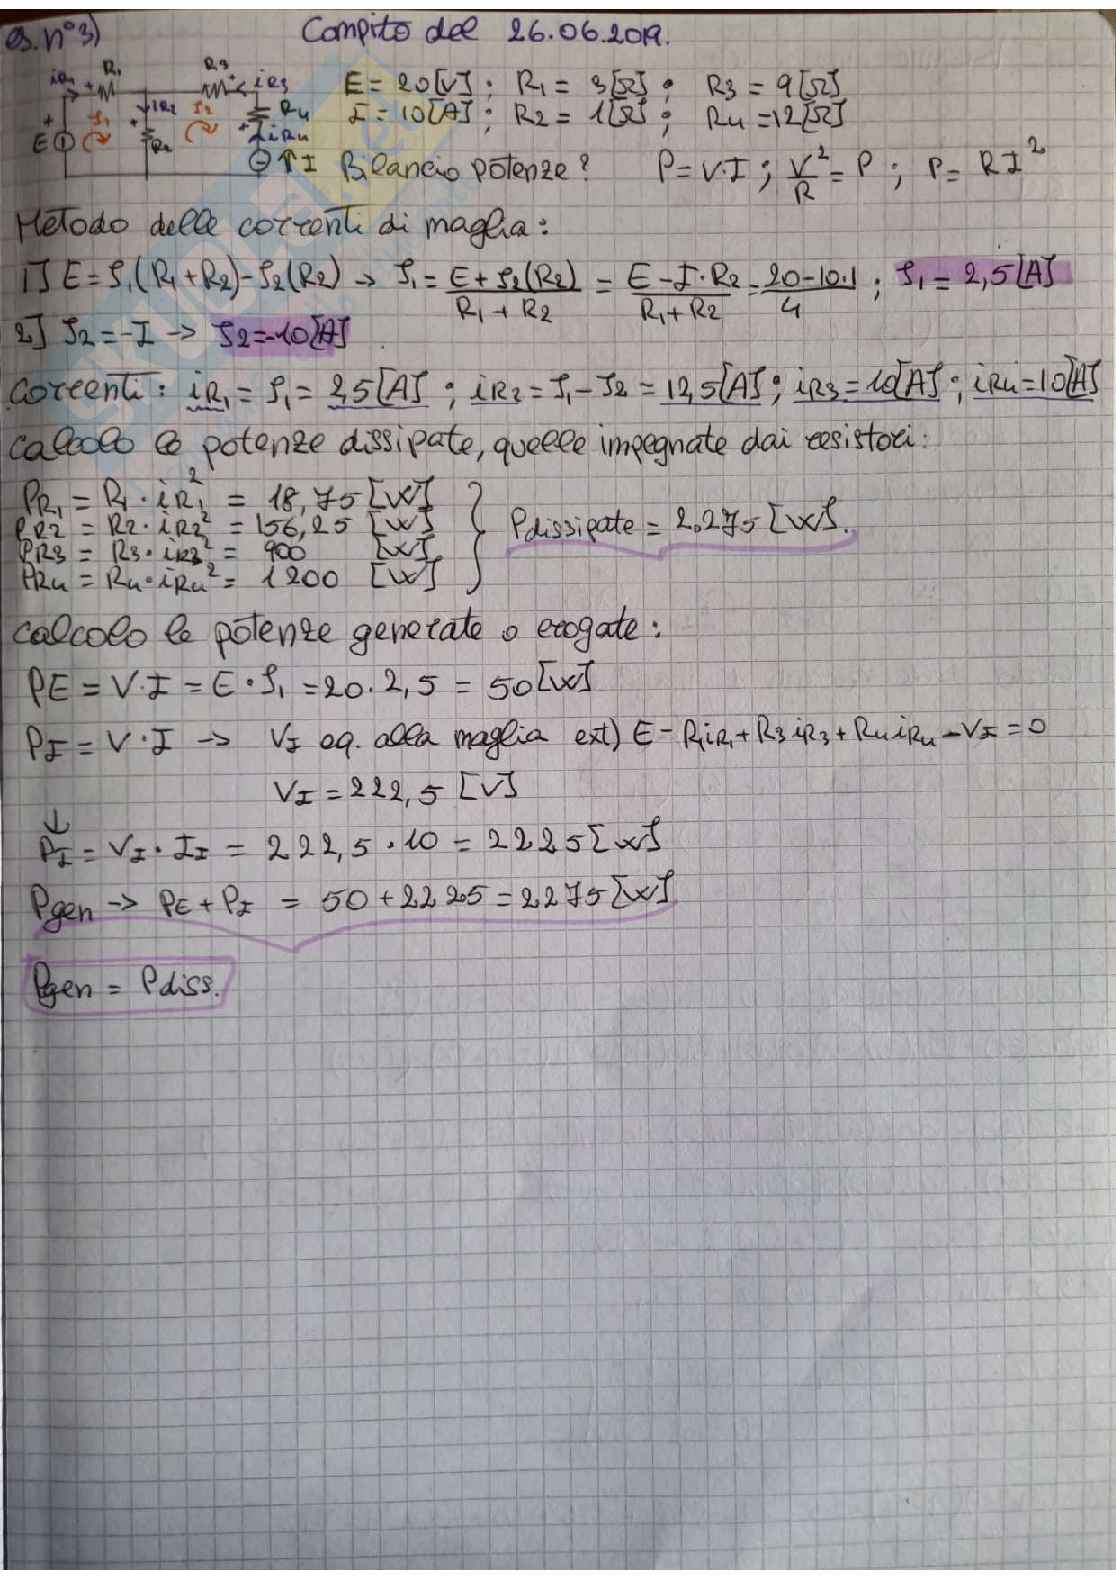 es. n°3) Compito del 26.06.2019.
iR1 R1 R3 iR3 E = 20[V] ; R1 = 3[Ω] ; R3 = 9[Ω]
E J1 iR2 R2 J2 R4 iR4 I = 10[A] ; R2 = 1[Ω] ; R4 = 12[Ω]
↑I Bilancio potenze? P = V·I ; V²/R = P ; P = RI²
Metodo delle correnti di maglia:
1] E = J1(R1+R2) - J2(R2) → J1 = E + J2(R2) / R1 + R2 = E - I·R2 / R1 + R2 = 20 - 10·1 / 4 ; J1 = 2,5[A]
2] J2 = -I → J2 = -10[A]
Correnti : iR1 = J1 = 2,5[A] ; iR2 = J1 - J2 = 12,5[A] ; iR3 = 10[A] ; iR4 = 10[A]
Calcolo le potenze dissipate, quelle impegnate dai resistori:
PR1 = R1 · iR1² = 18,75 [W]
PR2 = R2 · iR2² = 156,25 [W]
PR3 = R3 · iR3² = 900 [W]
PR4 = R4 · iR4² = 1200 [W]
Pdissipate = 2.275 [W].
Calcolo le potenze generate o erogate:
PE = V·I = E · J1 = 20 · 2,5 = 50 [W]
PI = V · I → VI eq. alla maglia ext) E - R1iR1 + R3iR3 + R4iR4 - VI = 0
VI = 222,5 [V]
↓
PI = VI · II = 222,5 · 10 = 2225 [W]
Pgen → PE + PI = 50 + 2225 = 2275 [W]
Pgen = Pdiss.